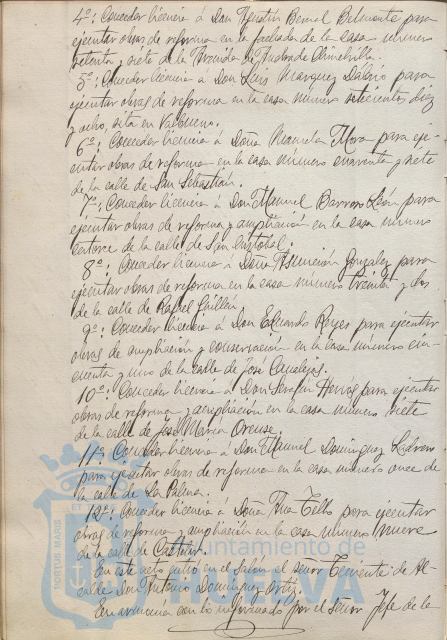 4º: Conceder licencia á Don Agustín Bernal Belmonte para
ejecutar obras de reforma en la fachada de la casa número
setenta y siete de la Avenida de Andrade Chinchilla.
5º: Conceder licencia á Don Luis Marquez Dabrio para
ejecutar obras de reforma en la casa número setecientos diez
y ocho, sita en Valbueno.
6º: Conceder licencia á Doña Manuela Mora para eje-
cutar obras de reforma en la casa número cuarenta y siete
de la calle de San Sebastián.
7º: Conceder licencia á Don Manuel Barroso León para
ejecutar obras de reforma y ampliación en la casa número
catorce de la calle de San Cristobal.
8º: Conceder licencia á Doña Asunción Gonzalez para
ejecutar obras de reforma en la casa número treinta y dos
de la calle de Rafael Guillén.
9º: Conceder licencia á Don Eduardo Reyes para ejecutar
obras de ampliación y conservación en la casa número cin-
cuenta y uno de la calle de José Canalejas.
10º: Conceder licencia á Don Serafín para ejecutar
obras de reforma y ampliación en la casa número siete
de la calle de José María Orense.
11º: Conceder licencia á Don Manuel Dominguez
para ejecutar obras de reforma en la casa número once de
la calle de La Palma.
12º: Conceder licencia á Doña Ana Tello para ejecutar
obras de reforma y ampliación en la casa número nueve
de la calle de
En este acto entró en el Salón el señor Teniente de Al-
calde Don Antonio Dominguez Ortiz.
En armonía con lo informado por el señor Jefe de la
Ayuntamiento de
HUELVA
PORTUS MARIS